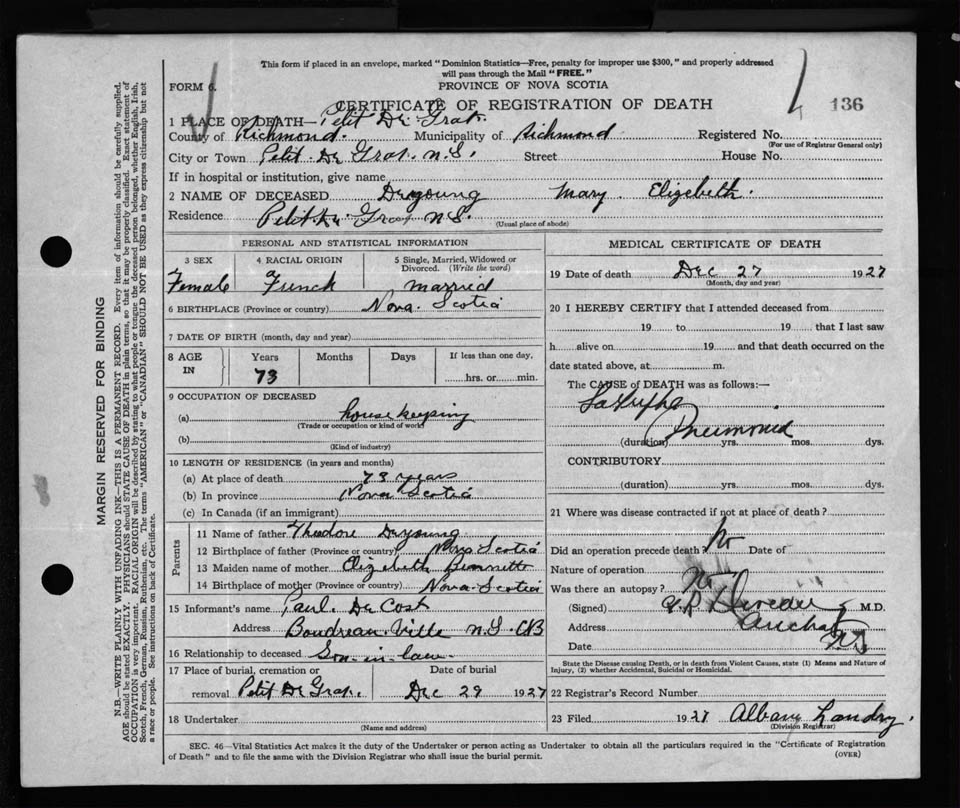 This form if placed in an envelope, marked "Dominion Statistics—Free, penalty for improper use $300," and properly addressed
will pass through the Mail "FREE."
FORM 6. PROVINCE OF NOVA SCOTIA
CERTIFICATE OF REGISTRATION OF DEATH 136
1 PLACE OF DEATH— Petit De Grat.
County of Richmond. Municipality of Richmond Registered No.
(For use of Registrar General only)
City or Town Petit De Grat. N.S. Street House No.
If in hospital or institution, give name
2 NAME OF DECEASED Deyoung Mary Elizabeth.
Residence Petit De Grat N.S.
(Usual place of abode)
MARGIN RESERVED FOR BINDING
N.B.—WRITE PLAINLY WITH UNFADING INK—THIS IS A PERMANENT RECORD. Every item of information should be carefully supplied.
AGE should be stated EXACTLY. PHYSICIANS should STATE CAUSE OF DEATH in plain terms, so that it may be properly classified. Exact statement of
OCCUPATION is very important. RACIAL ORIGIN will be described by stating to what people or tongue the deceased person belonged, whether English, Irish,
Scotch, French, German, Russian, Ruthenian, etc. The terms "AMERICAN" or "CANADIAN" SHOULD NOT BE USED as they express citizenship but not
a race or people. See instructions on back of Certificate.
PERSONAL AND STATISTICAL INFORMATION
3 SEX 4 RACIAL ORIGIN 5 Single, Married, Widowed or
Divorced. (Write the word)
Female French married
6 BIRTHPLACE (Province or country) Nova Scotia
7 DATE OF BIRTH (month, day and year)
8 AGE IN Years Months Days If less than one day,
73 hrs. or min.
9 OCCUPATION OF DECEASED
(a) house keeping
(Trade or occupation or kind of work)
(b)
(Kind of industry)
10 LENGTH OF RESIDENCE (in years and months)
(a) At place of death 73 years
(b) In province Nova Scotia
(c) In Canada (if an immigrant)
Parents
11 Name of father Theodore Deyoung
12 Birthplace of father (Province or country) Nova Scotia
13 Maiden name of mother Elizabeth
14 Birthplace of mother (Province or country) Nova Scotia
15 Informant's name Paul De Cost
Address Boudreau Ville N.S. CB
16 Relationship to deceased Son-in-law
17 Place of burial, cremation or Date of burial
removal Petit De Grat. Dec 29 1927
18 Undertaker
(Name and address)
MEDICAL CERTIFICATE OF DEATH
19 Date of death Dec 27 1927
(Month, day and year)
20 I HEREBY CERTIFY that I attended deceased from
19 to 19 that I last saw
h alive on 19 and that death occurred on the
date stated above, at m.
The CAUSE of DEATH was as follows:—
La Grippe
Pneumonia
(duration) yrs. mos. dys.
CONTRIBUTORY
(duration) yrs. mos. dys.
21 Where was disease contracted if not at place of death?
Did an operation precede death? No Date of
Nature of operation
Was there an autopsy? No
(Signed) M.D.
Address Arichat
Date N.S.
State the Disease causing Death, or in death from Violent Causes, state (1) Means and Nature of
Injury, (2) whether Accidental, Suicidal or Homicidal.
22 Registrar's Record Number
23 Filed 1927 Albany Landry.
(Division Registrar)
SEC. 46—Vital Statistics Act makes it the duty of the Undertaker or person acting as Undertaker to obtain all the particulars required in the "Certificate of Registration
of Death" and to file the same with the Division Registrar who shall issue the burial permit. (OVER)